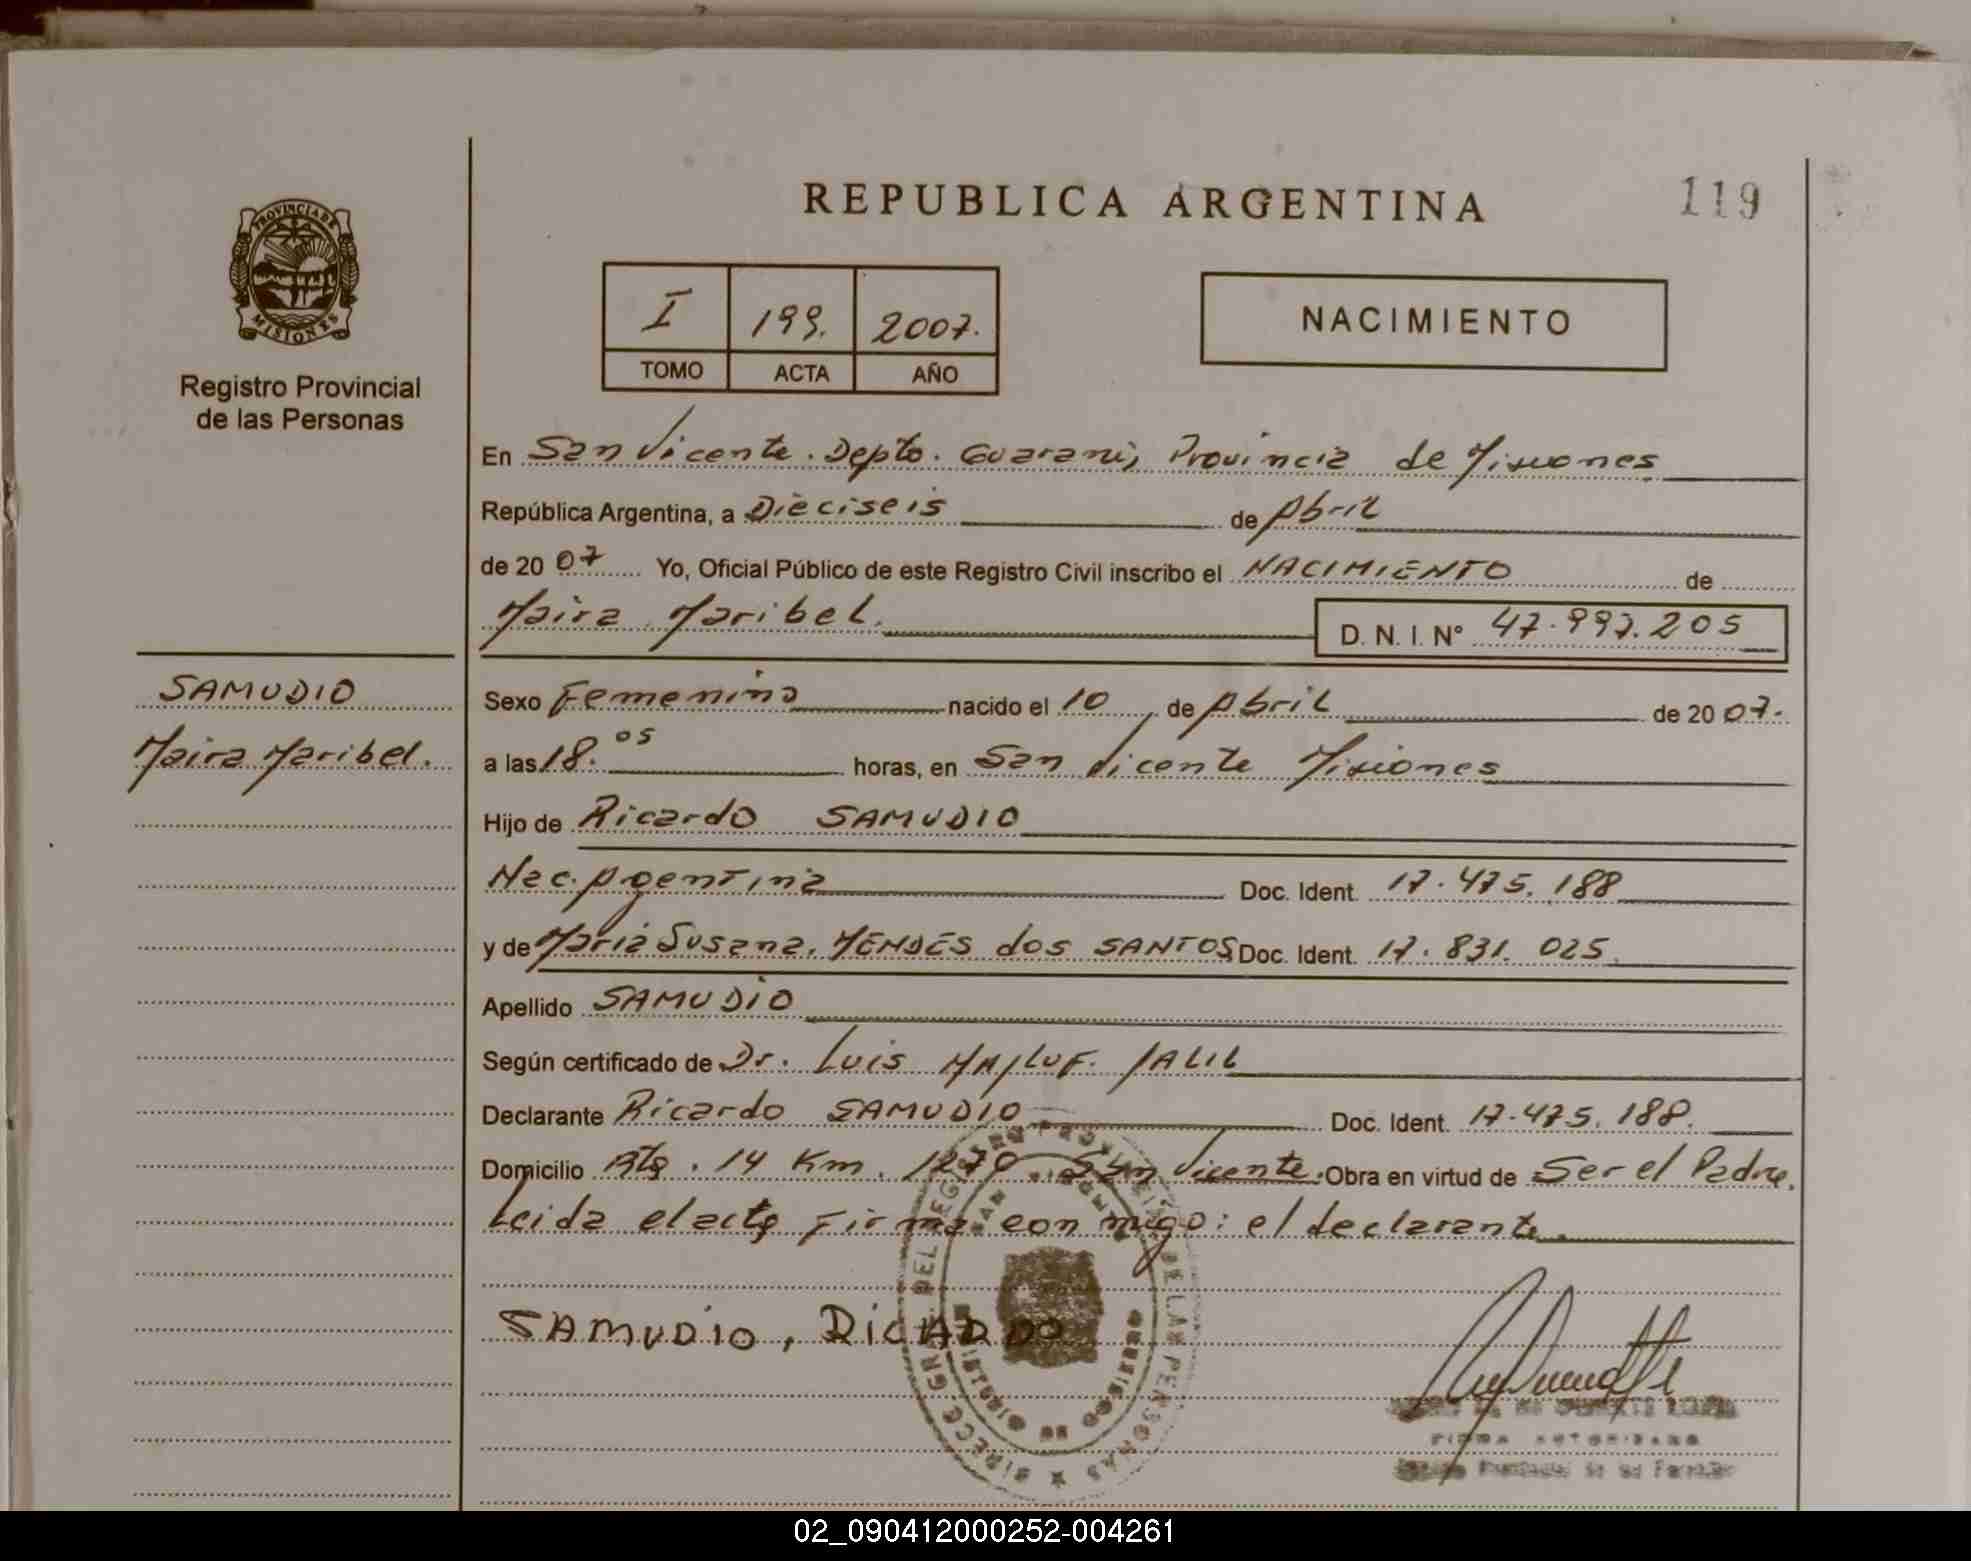 REPUBLICA ARGENTINA
119
PROVINCIA DE
MISIONES
Registro Provincial
de las Personas
I 199. 2007.
TOMO ACTA AÑO
NACIMIENTO
En San Vicente. Depto. Guaraní, Provincia de Misiones
República Argentina, a Dieciseis de Abril
de 2007 Yo, Oficial Público de este Registro Civil inscribo el NACIMIENTO de
Maira Maribel.
D. N. I. Nº 47.997.205
SAMUDIO
Maira Maribel.
Sexo Femenino nacido el 10 de Abril de 2007.
a las 18.05 horas, en San Vicente Misiones
Hijo de Ricardo SAMUDIO
Nac. Argentina Doc. Ident. 17.475.188
y de Maria Susana. MENDES dos SANTOS Doc. Ident. 17.831.025.
Apellido SAMUDIO
Según certificado de Dr. Luis MAJLUF. JALIL
Declarante Ricardo SAMUDIO Doc. Ident. 17.475.188.
Domicilio Rta. 14 Km. 1270 San Vicente. Obra en virtud de Ser el Padre.
Leida el acta Firma con migo: el declarante.
SAMUDIO, RICARDO
DIRECC GRAL DEL REGISTRO PROVINCIAL DE LAS PERSONAS
02_090412000252-004261